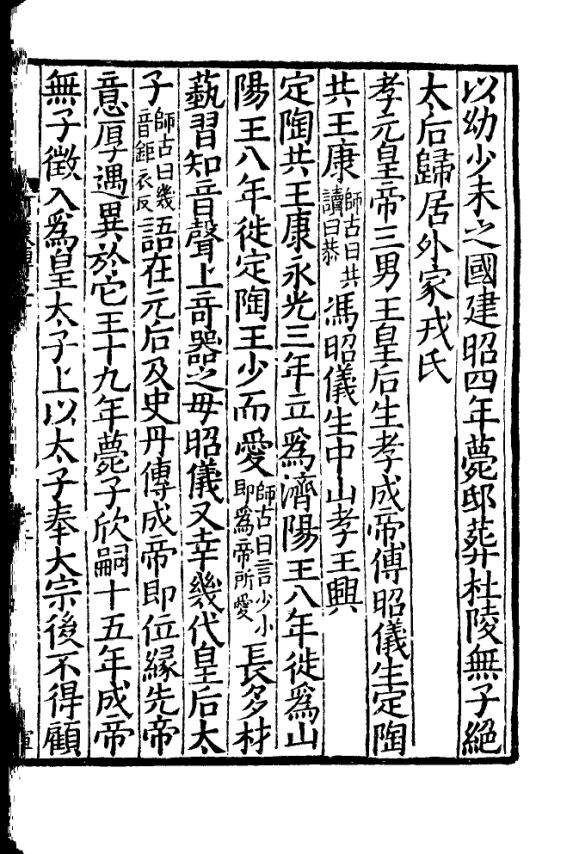 以幼少未之國建昭四年薨邸葬杜陵無子絕
太后歸居外家戎氏
孝元皇帝三男王皇后生孝成帝傅昭儀生定陶
共王康師古曰共讀曰恭馮昭儀生中山孝王興
定陶共王康永光三年立爲濟陽王八年徙爲山
陽王八年徙定陶王少而愛師古曰言少小即爲帝所愛長多材
藝習知音聲上奇器之母昭儀又幸幾代皇后太
子師古曰幾音鉅衣反語在元后及史丹傳成帝即位緣先帝
意厚遇異於它王十九年薨子欣嗣十五年成帝
無子徵入爲皇太子上以太子奉大宗後不得顧